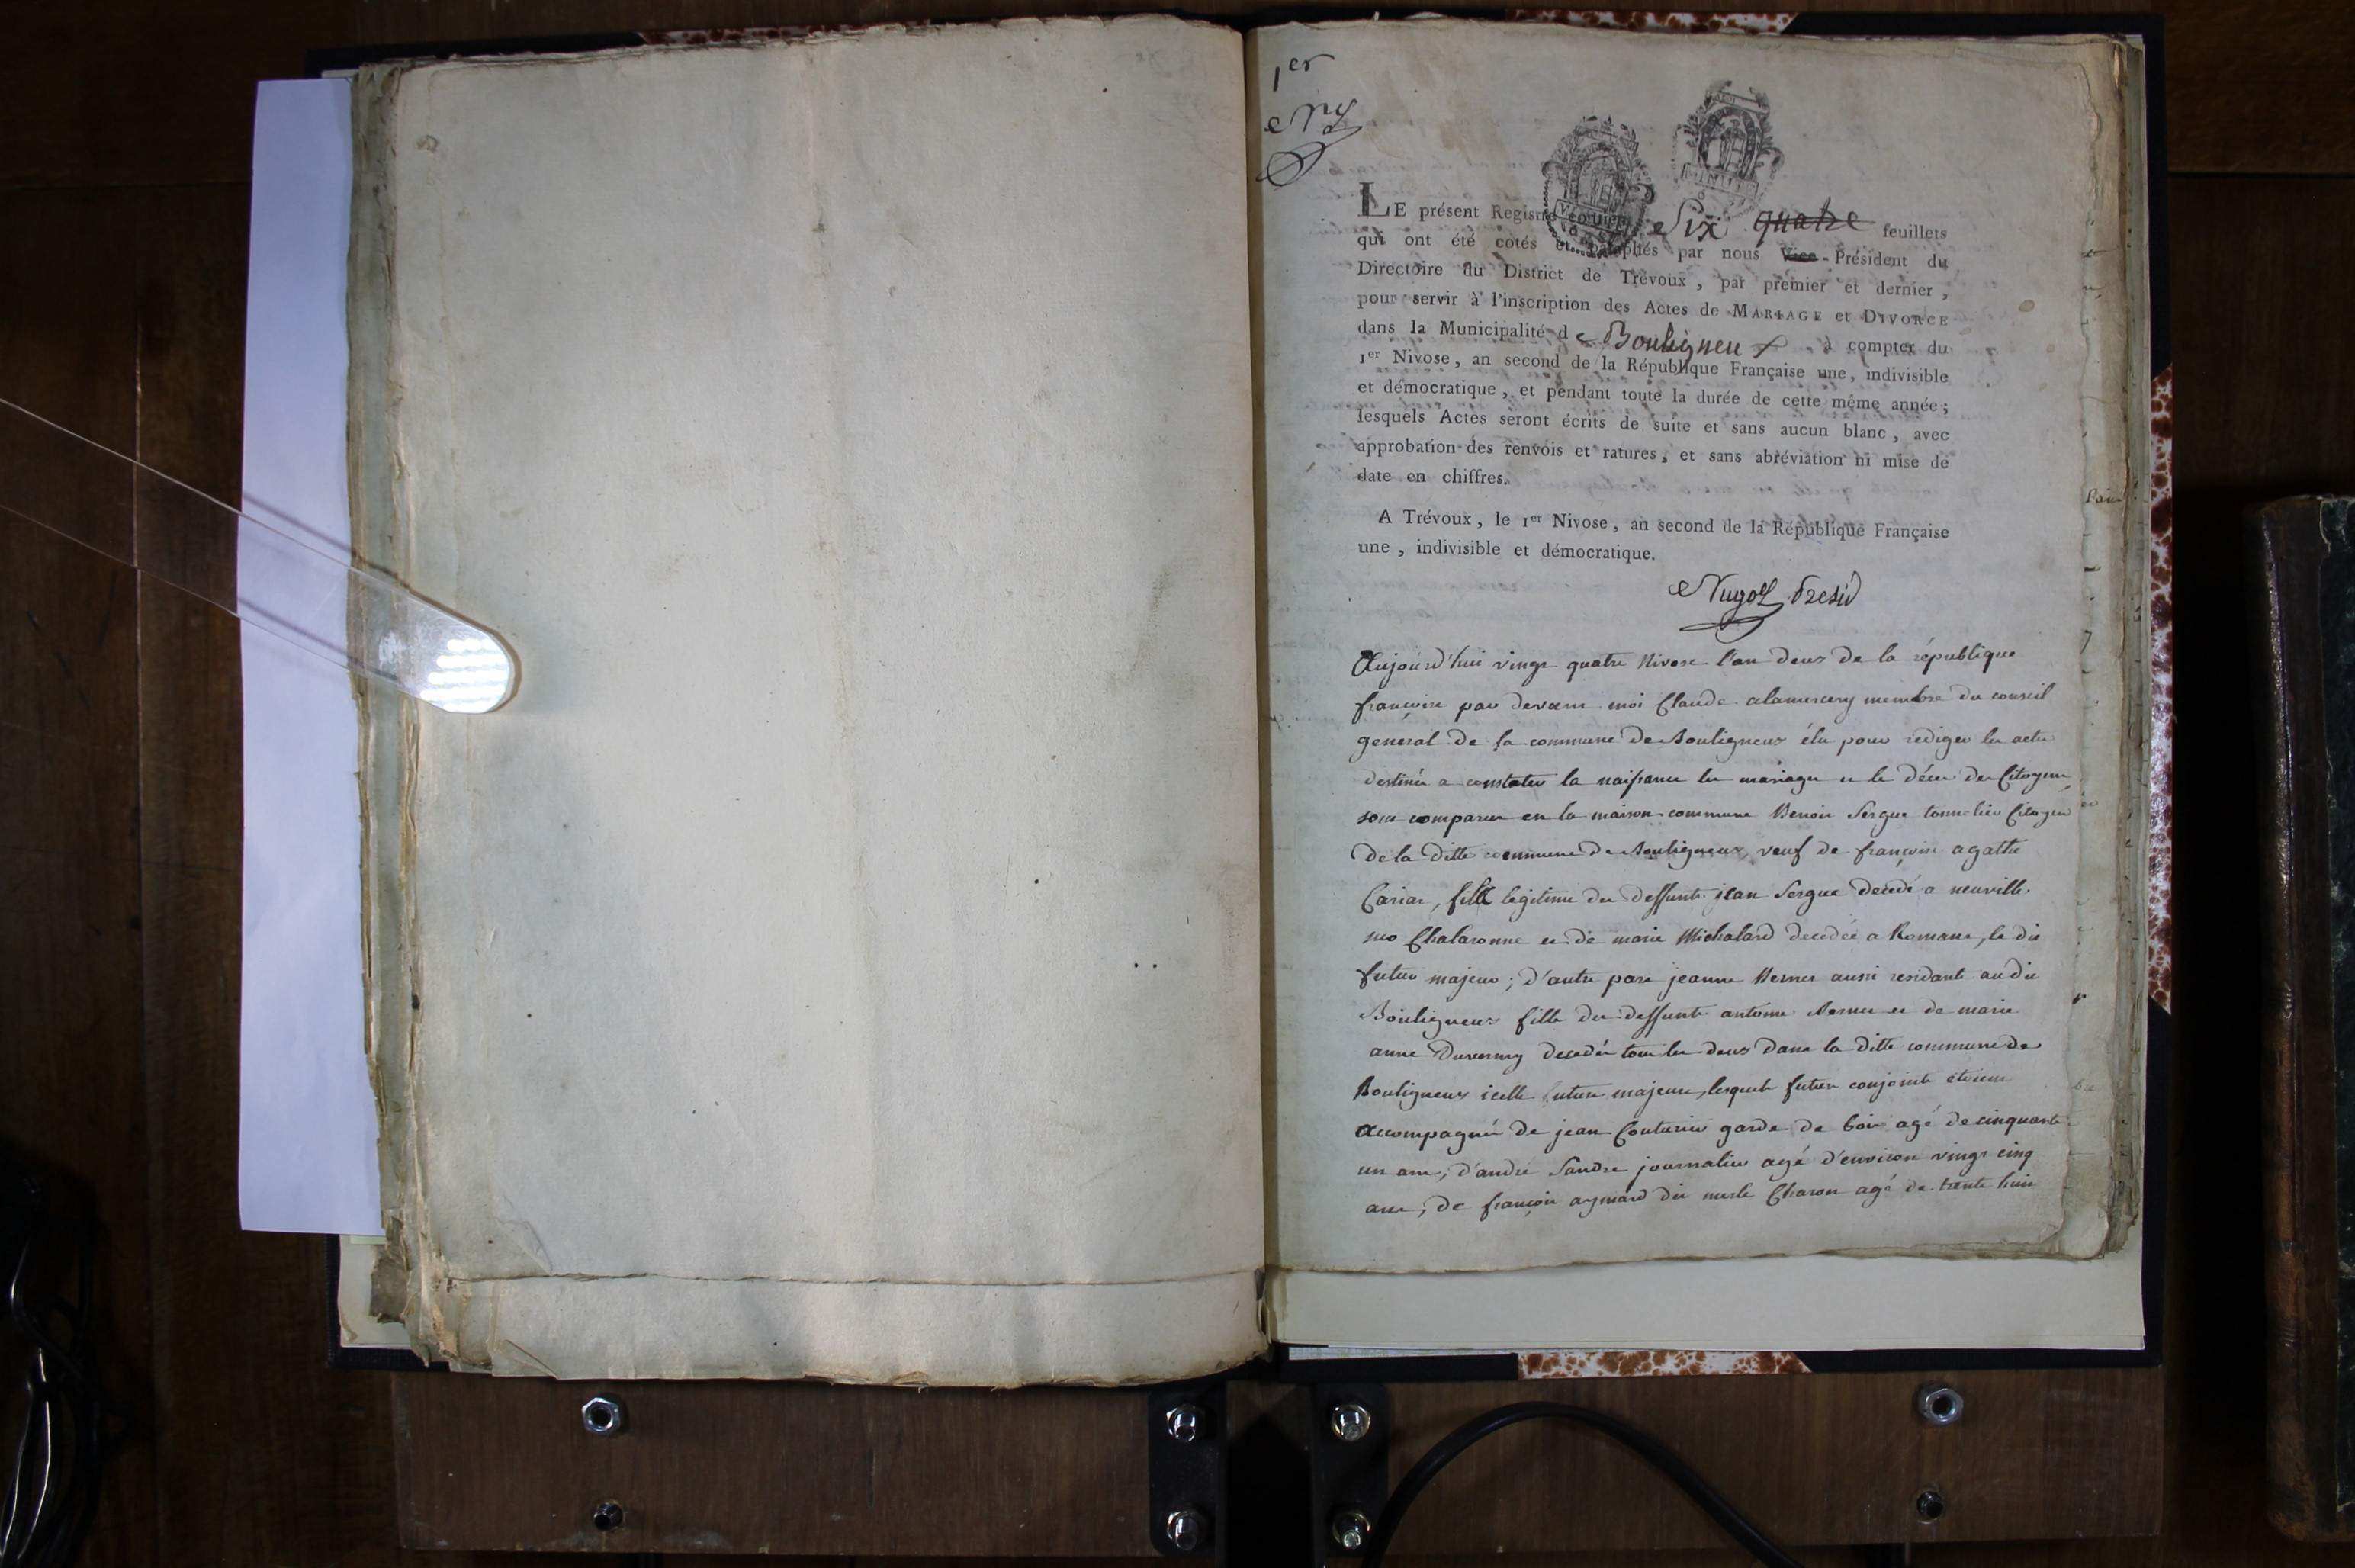 1er
LE présent Registre contient Six quatre feuillets
qui ont été cotés et paraphés par nous Vice-Président du
Directoire du District de Trévoux, par premier et dernier,
pour servir à l'inscription des Actes de MARIAGE et DIVORCE
dans la Municipalité de Bouligneux à compter du
1er Nivose, an second de la République Française une, indivisible
et démocratique, et pendant toute la durée de cette même année;
lesquels Actes seront écrits de suite et sans aucun blanc, avec
approbation des renvois et ratures, et sans abréviation ni mise de
date en chiffres.
A Trévoux, le 1er Nivose, an second de la République Française
une, indivisible et démocratique.
presid
Aujourd'hui vingt quatre Nivose l'an deux de la république
françoise par devant moi Claude alamercery membre du conseil
general de la commune de Bouligneux élu pour rediger les actes
destinés a constater la naissance les mariages et le décès des Citoyens
sont comparus en la maison commune Benoit Sergue tonnelier Citoyen
de la ditte commune de Bouligneux, veuf de françoise agathe
fils legitime du deffunt jean Sergue decedé a neuville
Chalaronne et de marie Michalard decedée a Romans, le dit
futur majeur; d'autre part jeanne Bernes aussi residante au dit
Bouligneux fille du deffunt antoine Bernes et de marie
anne decedés tous les deux dans la ditte commune de
Bouligneux icelle future majeure, lesquels futurs conjoints etoient
accompagnés de jean Couturier garde de bois agé de cinquante
un ans, d'andré Sandre journalier agé d'environ vingt cinq
ans, de françois aymard dit merle Charon agé de trente huit